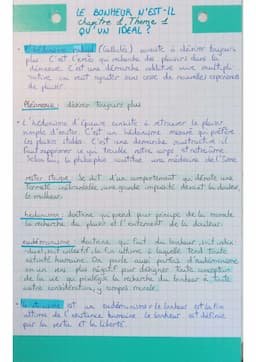 LE BONHEUR N'EST-IL
chapitre 1, Thème 1
QU'UN IDEAL ?
• L'hédonisme radical (Calliclès) consiste à désirer toujours
plus. C'est l'excès qui recherche des plaisirs dans la
démesure. C'est une démarche additive voire multipli-
cative, on veut rajouter sans cesse de nouvelles expériences
de plaisir.
Pléonexie : désirer toujours plus
• L'hédonisme d'Épicure consiste à retrouver le plaisir
simple d'exister. C'est un hédonisme mesuré qui préfère
les plaisirs stables. C'est une démarche soustractive il
faut supprimer ce qui trouble notre corps et notre âme.
Selon lui, la philosophie constitue une médecine de l'âme.
rester stoïque : Se dit d'un comportement qui dénote une
fermeté inébranlable, une grande impassibilité devant la douleur,
le malheur.
hédonisme : doctrine qui prend pour principe de la morale
la recherche du plaisir et l'évitement de la douleur.
eudémonisme : doctrine qui fait du bonheur, soit indivi-
duel, soit collectif la fin ultime à laquelle tend toute
activité humaine. On parle aussi parfois d'eudémonisme
en un sens plus négatif pour désigner toute conception
de la vie qui privilégie la recherche du bonheur à toute
autre considération, y compris morale.
• Le stoïcisme est un eudémonisme : le bonheur est la fin
ultime de l'existence humaine. Le bonheur est définie
par la vertu et la liberté.